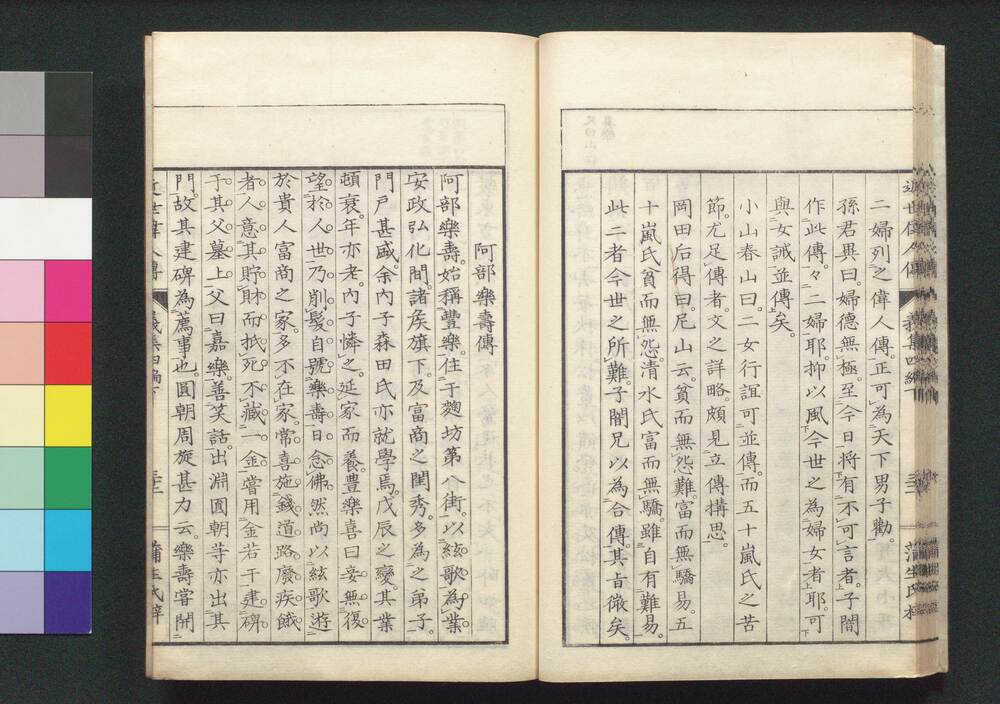 二婦列之偉人傳。正可為天下男子勸。
孫君異曰。婦德無極。至今日將有不可言者。子闇
作此傳。々二婦耶。抑以風今世之為婦女者耶。可
與女誡並傳矣。
小山春山曰。二女行誼可並傳。而五十嵐氏之苦
節。尤足傳者。文之詳略。頗見立傳搆思。
岡田后得曰。尼山云。貧而無怨難。富而無驕易。五
十嵐氏貧而無怨。清水氏富而無驕。雖自有難易。
此二者今世之所難。子闇兄以為合傳。其旨微矣。
近世偉人傳
蒲生氏
阿部樂壽傳
阿部樂壽。始稱豐樂。住于麴坊第八街。以絃歌為業。
安政弘化間。諸侯旗下。及富商之閨秀。多為之弟子。
門戶甚盛。余內子森田氏亦就學焉。戊辰之變。其業
頓衰。年亦老。內子憐之。延家而養。豊樂喜曰。妾無復
望於人世。乃削髮自號樂壽。日念佛。然尚以絃歌遊
於貴人富商之家。多不在家。常喜施錢道路廢疾餓
者。人意其貯財。而抵死。不藏一金。嘗用金若干。建碑
于其父墓上。父曰嘉樂。善笑話。出淵圓朝等亦出其
門。故其建碑為薦事也。圓朝周旋甚力云。樂壽嘗鬧
近世偉人傳
義集四編下
蒲生氏梓